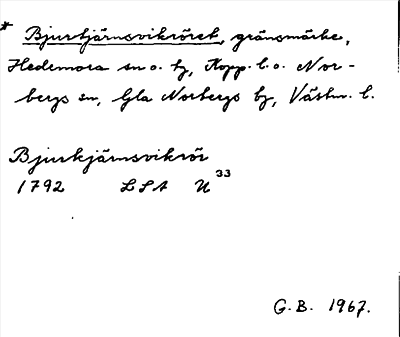 * Bjurkjärnsvikröret, gränsmärke,
Hedemora sn o. hg, Kopp. l. o. Nor-
bergs sn, Gla Norbergs bg, Västm. l.
Bjurkjärnsvikrör
1792 LSA U 33
G. B. 1967.